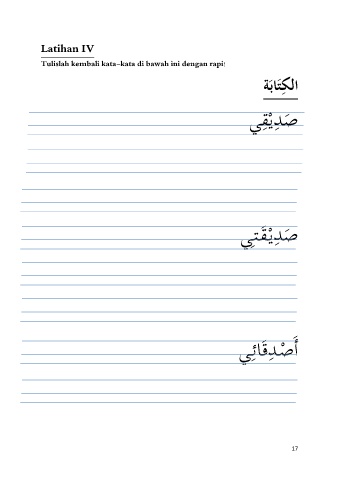 Latihan IV
Tulislah kembali kata-kata di bawah ini dengan rapi!
الكِتَابَة
صَدِيْقِي
صَدِيْقَتِي
أَصْدِقَائِي
17